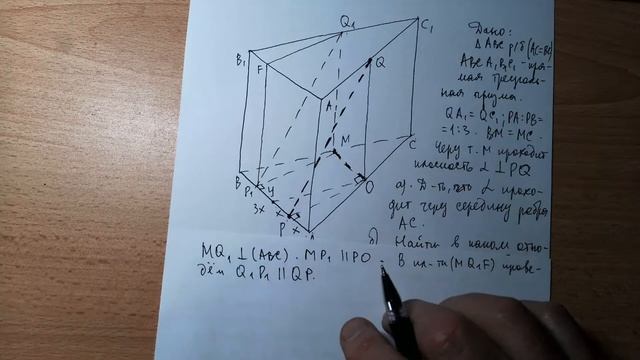 Q₁
C₁
B₁
F
Q
A
M
C
B
P₁
y
O
3x
x
P
A
Дано:
Δ ABC р/б (AC=BC)
ABCA₁B₁C₁ - пря-
мая треуголь-
ная призма.
QA₁ = QC₁; PA:PB=
=1:3. BM=MC.
Через т. M проходит
плоскость α ⊥ PQ
а). Д-ть, что α прохо-
дит через середину ребра
AC.
б) Найти в каком отно-
MQ₁ ⊥ (ABC). MP₁ || PO. В пл-ти (MQ₁F) прове-
дём Q₁P₁ || QP.